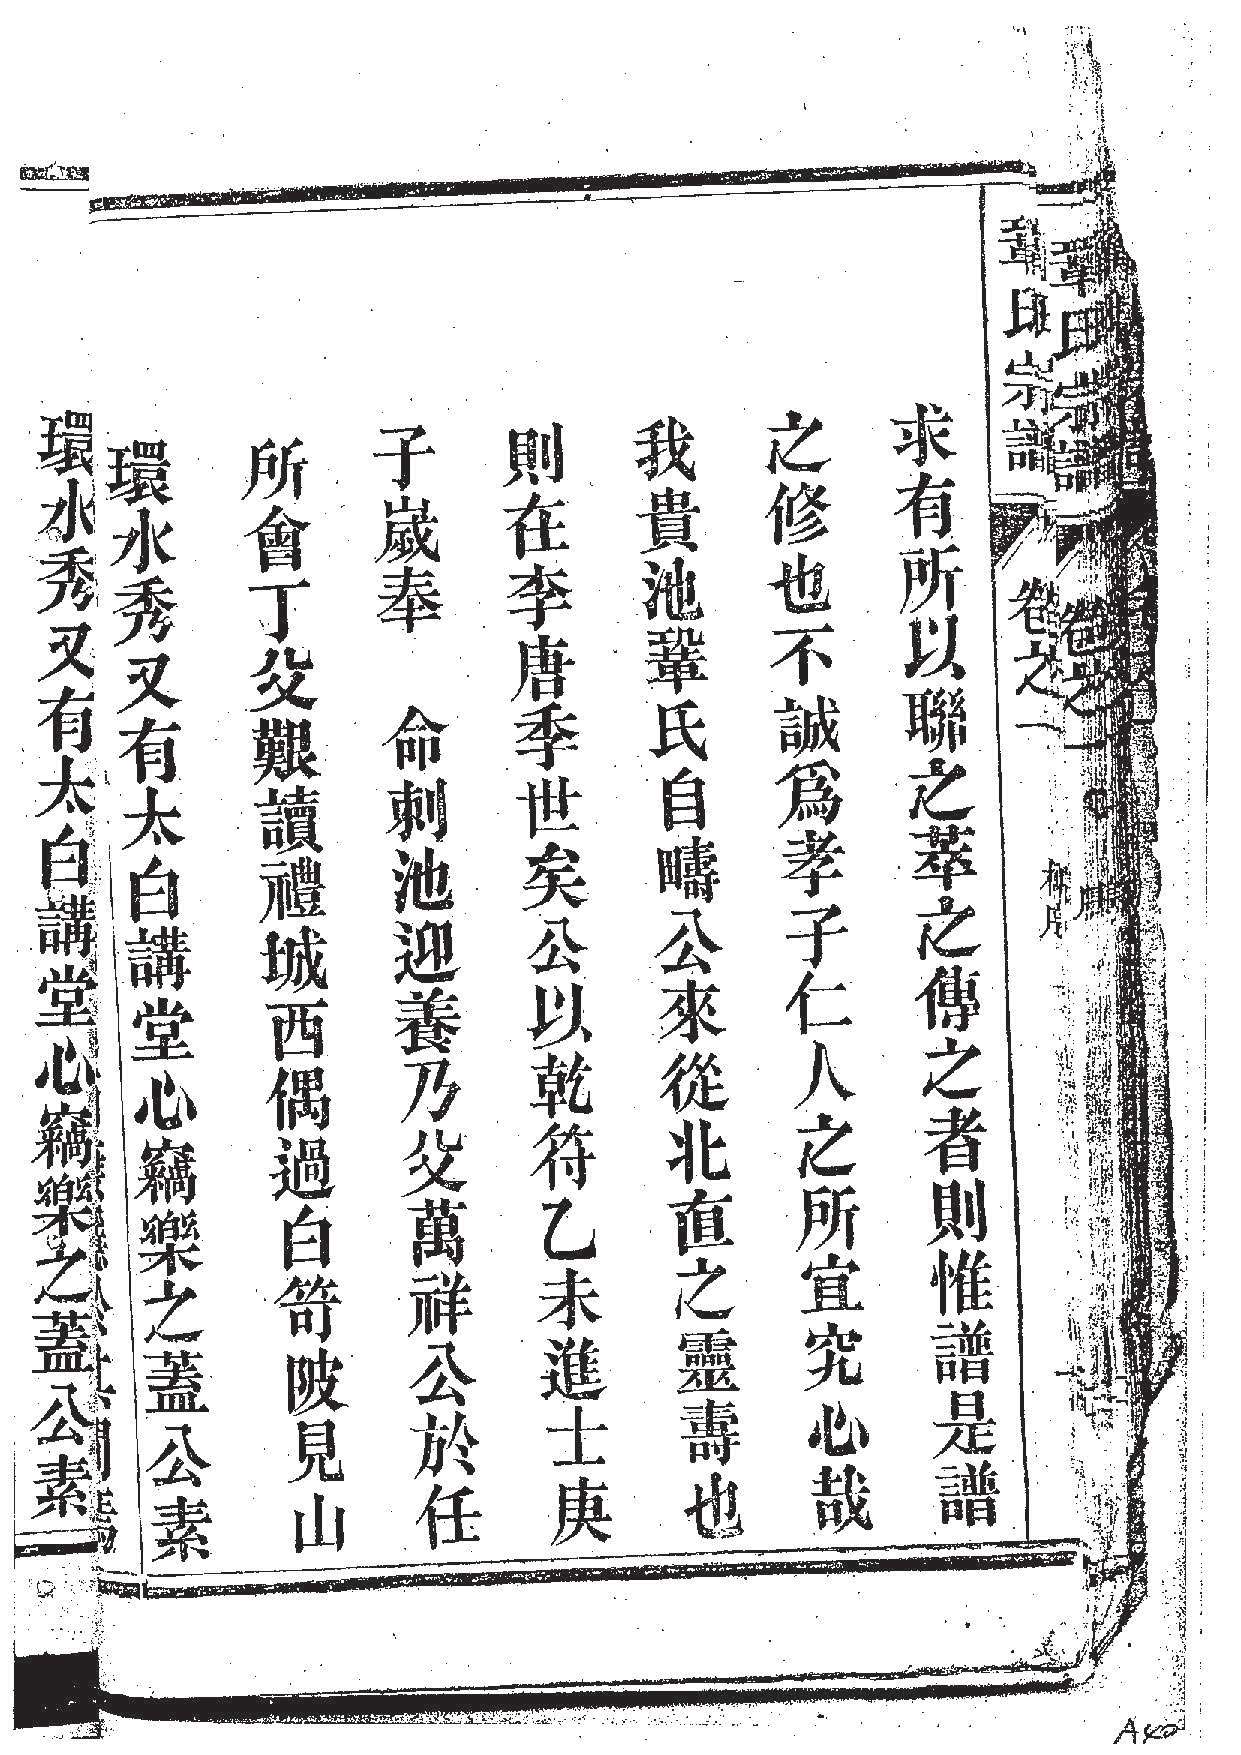 鞏氏宗譜 卷之一
求有所以聯之萃之傳之者則惟譜是譜
之修也不誠爲孝子仁人之所宜究心哉
我貴池鞏氏自疇公來從北直之靈壽也
則在李唐季世矣公以乾符乙未進士庚
子嵗奉 命刺池迎養乃父萬祥公於任
所會丁父艱讀禮城西偶過白笴陂見山
環水秀又有太白講堂心竊樂之蓋公素
環水秀又有太白講堂心竊樂之蓋公素
A40